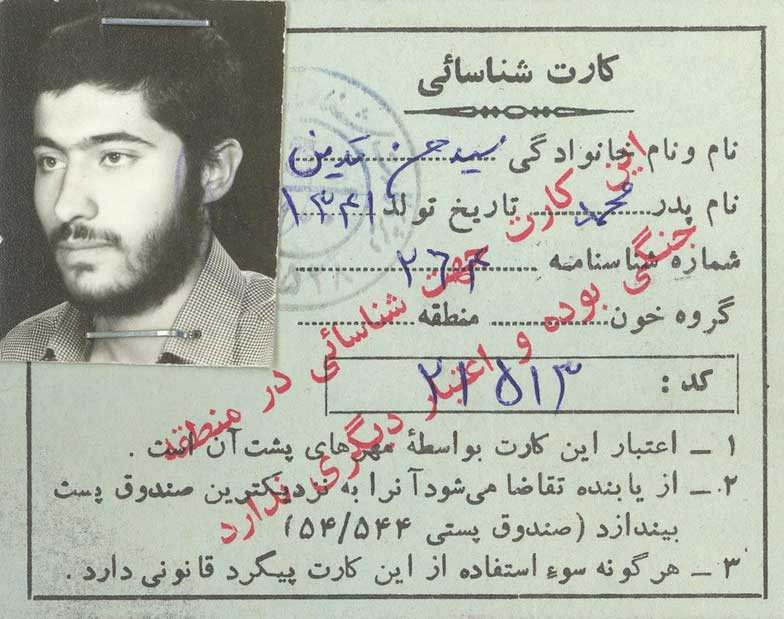 کارت شناسائی
نام ونام خانوادگی سید حسن مدین
نام پدر محمد تاریخ تولد ۱۳۴۱
شماره شناسنامه ۲۶۴
گروه خون منطقه
کد : ۲۱۵۱۳
۱ – اعتبار این کارت بواسطهٔ مهرهای پشت آن است .
۲ – از یابنده تقاضا می‌شود آنرا به نزدیکترین صندوق پست
بیندازد (صندوق پستی ۵۴/۵۴۴)
۳ – هرگونه سوءِ استفاده از این کارت پیگرد قانونی دارد .
این کارت جهت شناسائی در منطقه
جنگی بوده و اعتبار دیگری ندارد